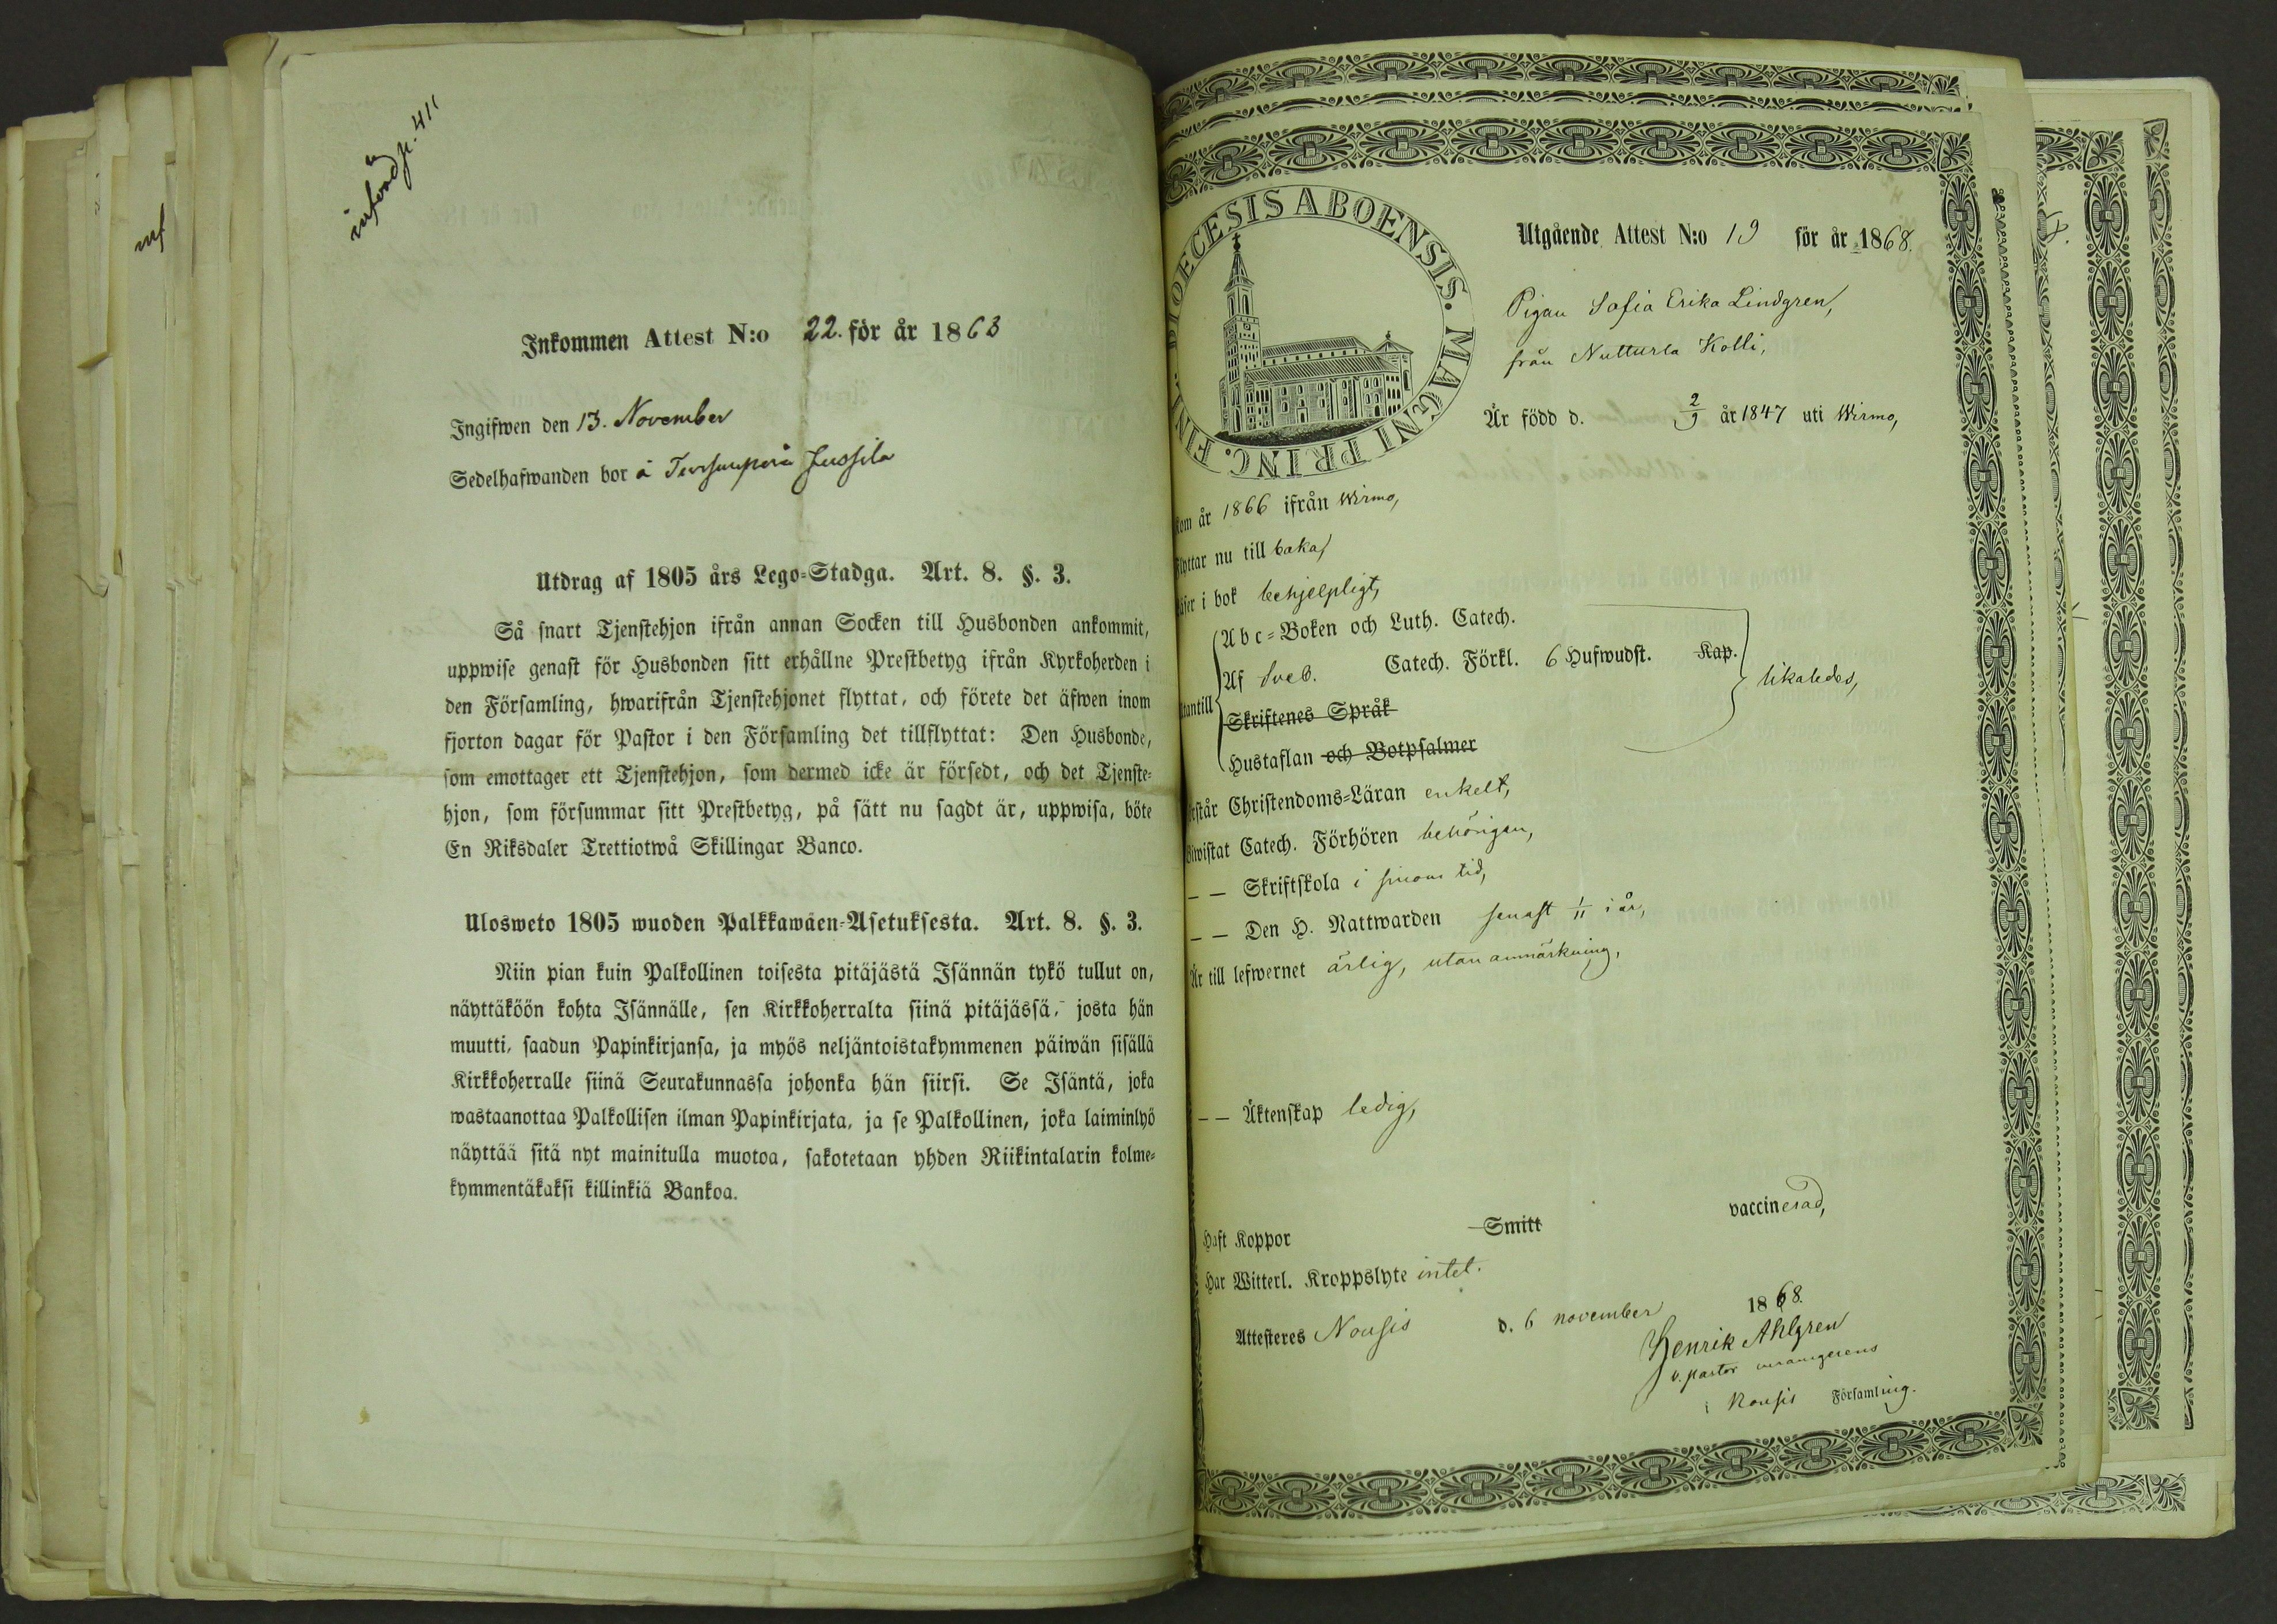 införd p. 411
Inkommen Attest N:o 22. för år 1868
Ingifwen den 13. November
Sedelhafwanden bor å Tursunperä Jussila
Utdrag af 1805 års Lego-Stadga. Art. 8. §. 3.
Så snart Tjenstehjon ifrån annan Socken till Husbonden ankommit,
uppwise genast för Husbonden sitt erhållne Prestbetyg ifrån Kyrkoherden i
den Församling, hwarifrån Tjenstehjonet flyttat, och förete det äfwen inom
fjorton dagar för Pastor i den Församling det tillflyttat: Den Husbonde,
som emottager ett Tjenstehjon, som dermed icke är försedt, och det Tjenste-
hjon, som försummar sitt Prestbetyg, på sätt nu sagdt är, uppwisa, böte
En Riksdaler Trettiotwå Skillingar Banco.
Ulosweto 1805 wuoden Palkkawäen-Asetuksesta. Art. 8. §. 3.
Niin pian kuin Palkollinen toisesta pitäjästä Isännän tykö tullut on,
näyttäköön kohta Isännälle, sen Kirkkoherralta siinä pitäjässä, josta hän
muutti, saadun Papinkirjansa, ja myös neljäntoistakymmenen päiwän sisällä
Kirkkoherralle siinä Seurakunnassa johonka hän siirsi. Se Isäntä, joka
wastaanottaa Palkollisen ilman Papinkirjata, ja se Palkollinen, joka laiminlyö
näyttää sitä nyt mainitulla muotoa, sakotetaan yhden Riikintalarin kolme-
kymmentäkaksi killinkiä Bankoa.
DIOECESIS ABOENSIS. MAGNI PRINC. FINL.
Utgående Attest N:o 19 för år 1868.
Pigan Sofia Erika Lindgren,
från Nutturla Kolli,
Är född d. 2/9 år 1847 uti Wirmo,
Kom år 1866 ifrån Wirmo,
Flyttar nu till baka,
Läser i bok behjelpligt,
Utantill
Abc-Boken och Luth. Catech.
Af Sveb. Catech. Förkl. 6 Hufwudst. Kap.
likaledes,
Skriftenes Språk
Hustaflan och Botpsalmer
Förstår Christendoms-Läran enkelt,
Biwistat Catech. Förhören behörigen,
— — Skriftskola i sinom tid,
— — Den H. Nattwarden senast 1/11 i år,
Är till lefwernet ärlig, utan anmärkning,
— — Äktenskap ledig,
Haft Koppor Smitt vaccinerad,
Har Witterl. Kroppslyte intet.
Attesteres Nousis d. 6 november 1868.
Henrik Ahlgren
v. pastor
i Nousis Församling.